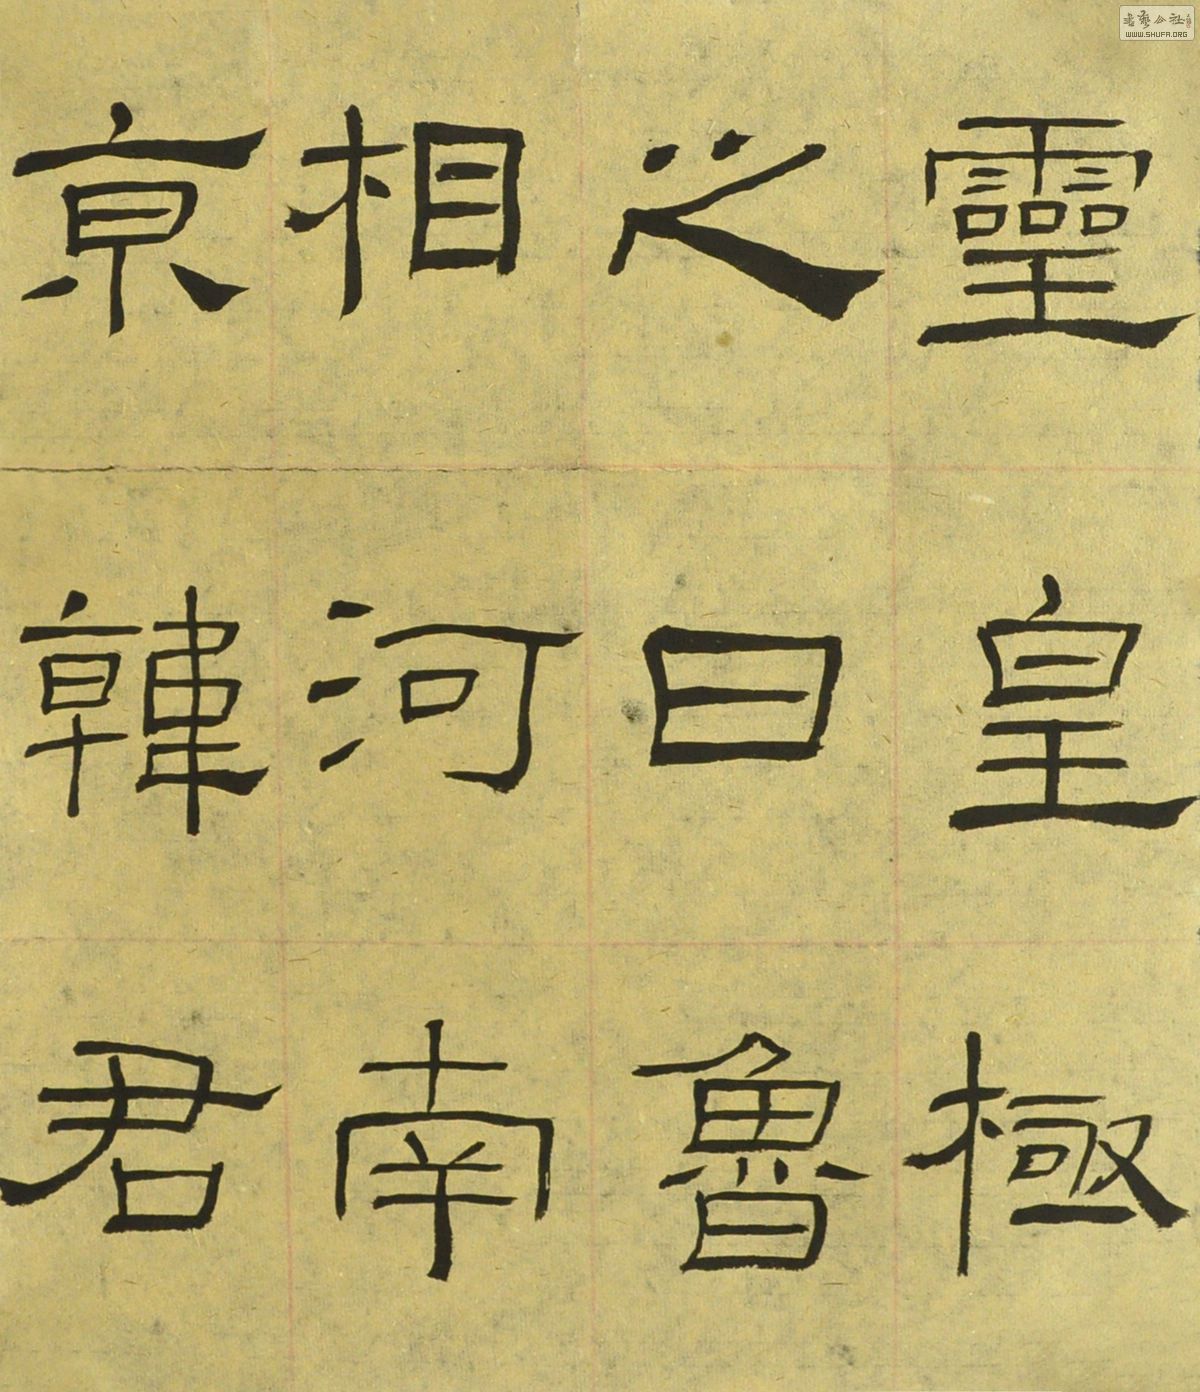 靈皇極
之日魯
相河南
京韓君
書藝公社
WWW.SHUFA.ORG